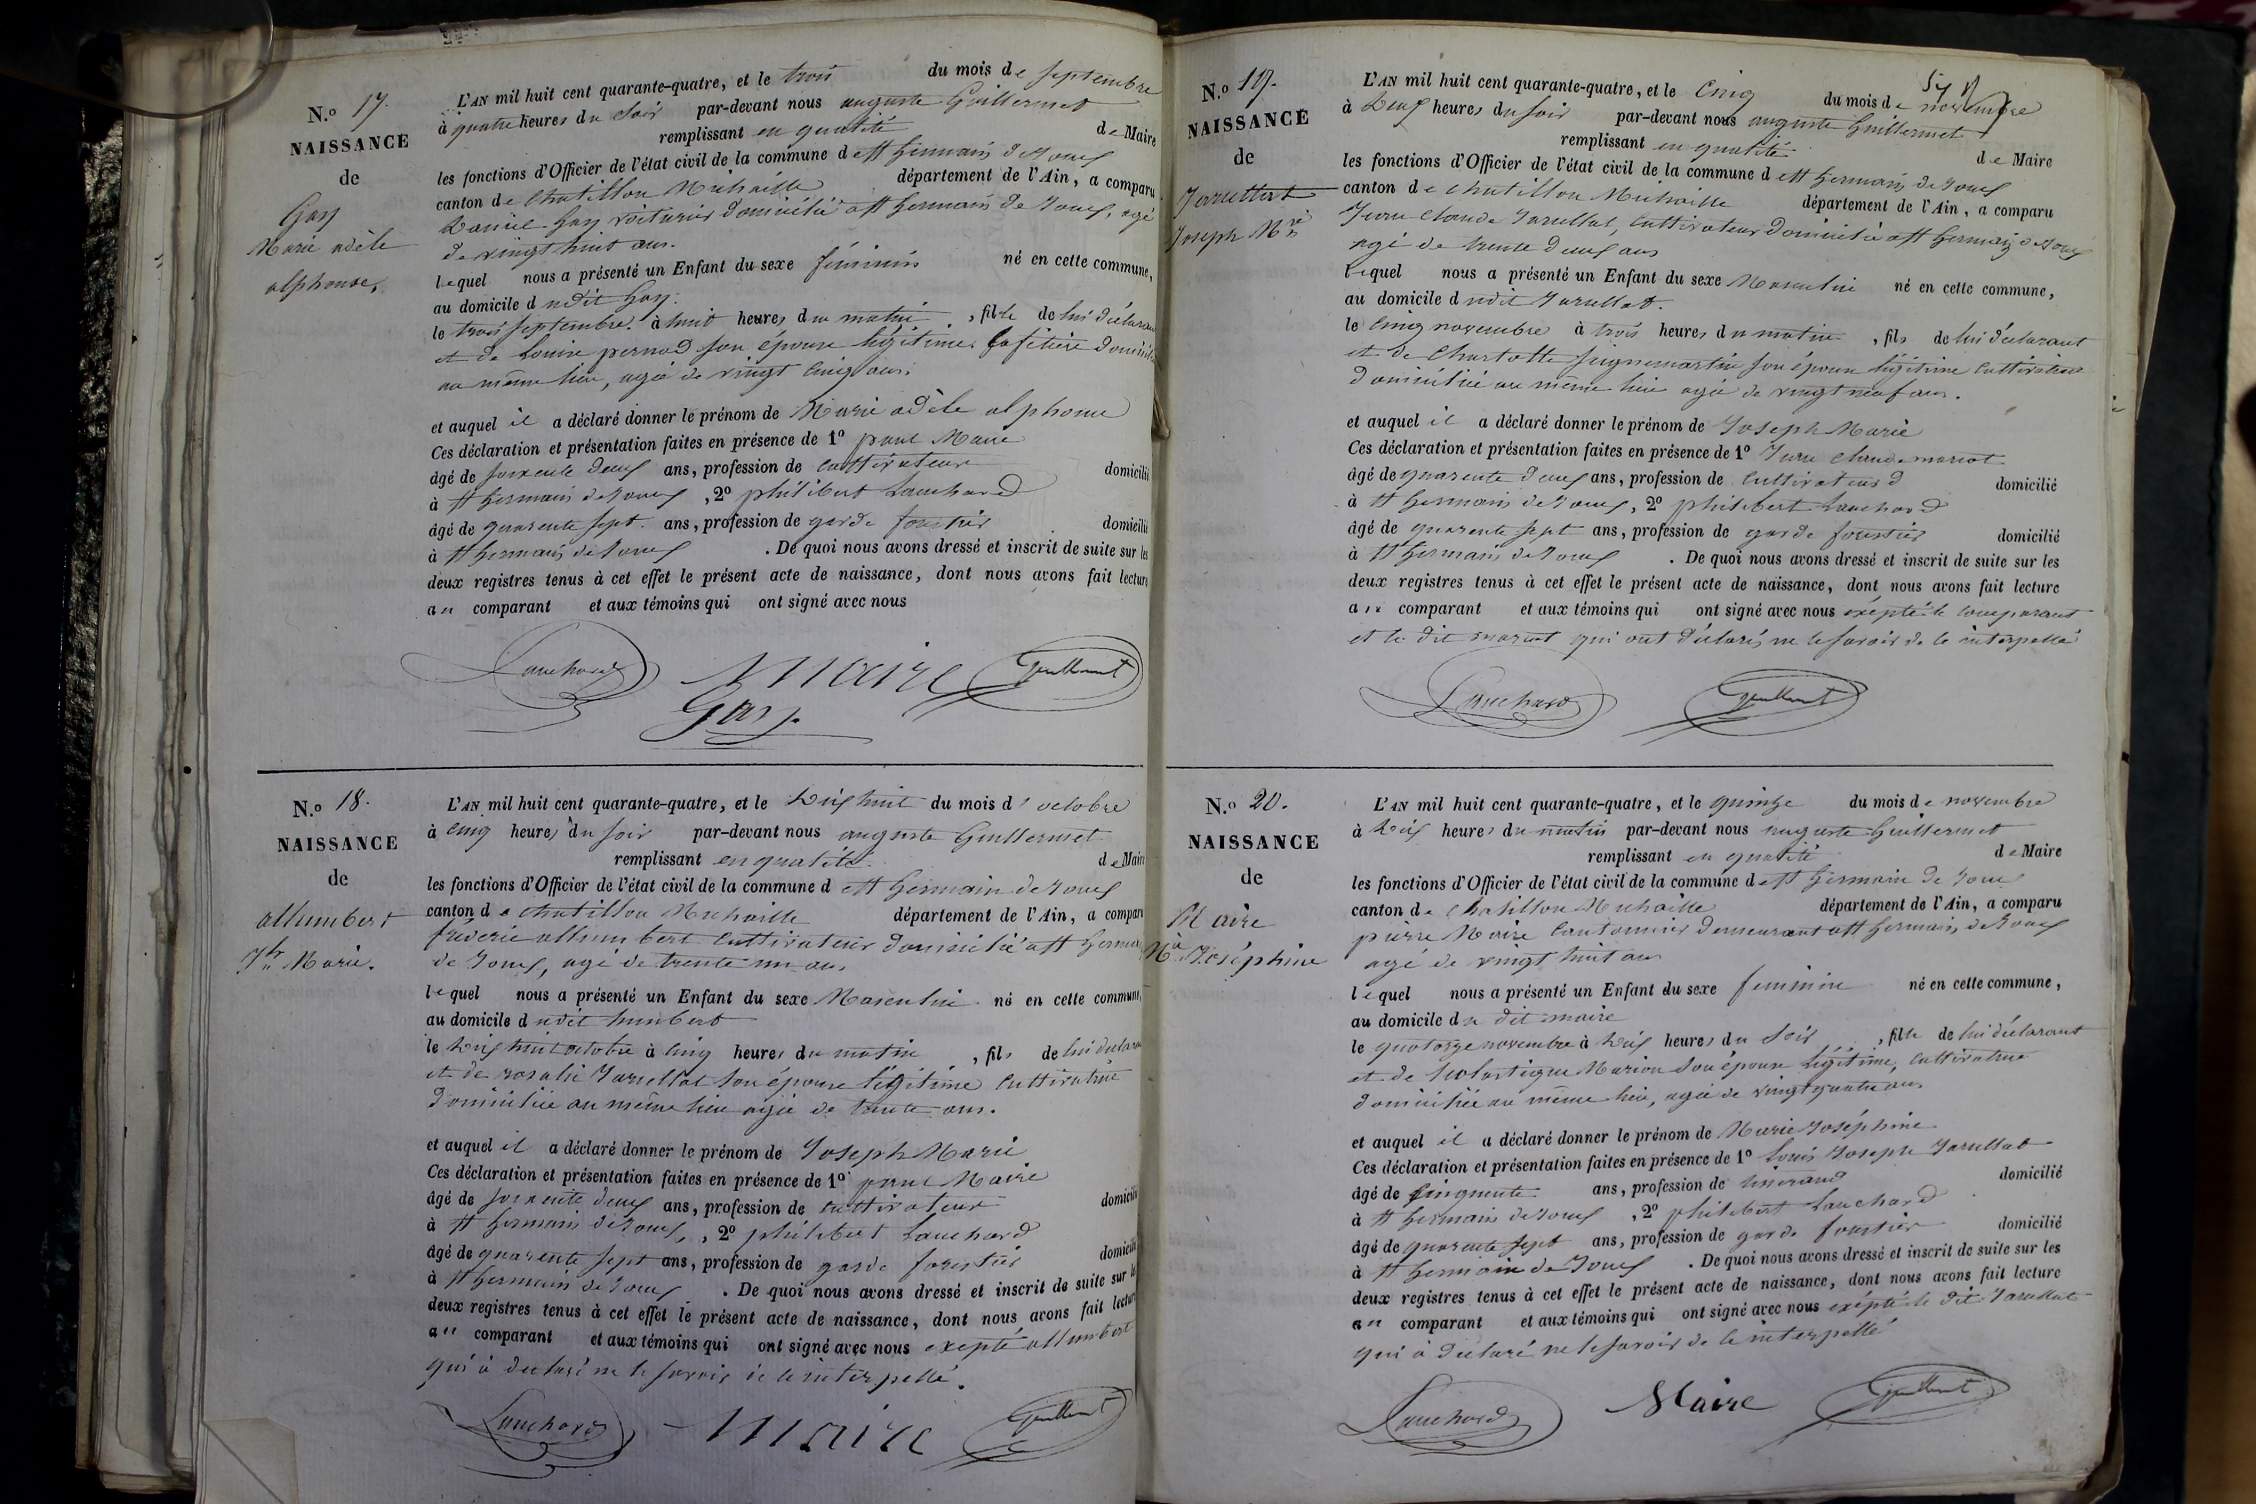 N.o 17.
NAISSANCE
de
Gay
Marie adèle
alphonse,
L'AN mil huit cent quarante-quatre, et le trois du mois de septembre
à quatre heures du soir par-devant nous auguste Guillermet
remplissant en qualité de Maire
les fonctions d'Officier de l'état civil de la commune de St Germain de Joux
canton de Chatillon Michaille département de l'Ain, a comparu
Daniel Gay voiturier domicilié a St Germain de Joux, agé
de vingt huit ans.
lequel nous a présenté un Enfant du sexe féminin né en cette commune,
au domicile dudit Gay.
le trois septembre à huit heures du matin, fille de lui déclarant
et de Louise pernod son épouse légitime. Cafetière domicil
au même lieu, agée de vingt cinq ans.
et auquel il a déclaré donner le prénom de Marie adèle alphonse
Ces déclaration et présentation faites en présence de 1o paul Maire
âgé de soixente deux ans, profession de cultivateur domicilié
à St Germain de Joux, 2o philibert Lanchard
âgé de quarente sept ans, profession de garde forestier domicilié
à St Germain de Joux. De quoi nous avons dressé et inscrit de suite sur les
deux registres tenus à cet effet le présent acte de naissance, dont nous avons fait lecture
au comparant et aux témoins qui ont signé avec nous
Lanchard Maire Guillermet
Gay
N.o 18.
NAISSANCE
de
allumbert
Jh Marie.
L'AN mil huit cent quarante-quatre, et le dix huit du mois d'octobre
à cinq heures du soir par-devant nous auguste Guillermet
remplissant en qualité de Maire
les fonctions d'Officier de l'état civil de la commune de St Germain de Joux
canton de Chatillon Michaille département de l'Ain, a comparu
fréderic allumbert cultivateur domicilié a St Germain
de Joux, agé de trente un ans
lequel nous a présenté un Enfant du sexe Masculin né en cette commune,
au domicile dudit humbert
le dix huit octobre à cinq heures du matin, fils de lui déclara
et de rosalie Jarullat son épouse légitime cultivatrice
domiciliée au même lieu agée de trente ans.
et auquel il a déclaré donner le prénom de Joseph Marie
Ces déclaration et présentation faites en présence de 1o paul Maire
âgé de soixente deux ans, profession de cultivateur domicilié
à St Germain de Joux, 2o philibert Lanchard
âgé de quarente sept ans, profession de garde forestier domicilié
à St Germain de Joux. De quoi nous avons dressé et inscrit de suite sur les
deux registres tenus à cet effet le présent acte de naissance, dont nous avons fait lecture
au comparant et aux témoins qui ont signé avec nous excepté allumbert
qui à déclaré ne le savoir de le interpellé.
Lanchard Maire Guillermet
N.o 19.
NAISSANCE
de
Jarullat
Joseph Mie
L'AN mil huit cent quarante-quatre, et le cinq du mois de novembre
à deux heures du soir par-devant nous auguste Guillermet
remplissant en qualité de Maire
les fonctions d'Officier de l'état civil de la commune de St Germain de Joux
canton de Chatillon Michaille département de l'Ain, a comparu
Jean Claude Jarullat, cultivateur domicilié a St Germain de Joux
agé de trente deux ans
lequel nous a présenté un Enfant du sexe Masculin né en cette commune,
au domicile dudit Jarullat.
le cinq novembre à trois heures du matin, fils de lui déclarant
et de Charlotte Seignemartin son épouse légitime cultivatrice
domiciliée au même lieu agée de vingt neuf ans.
et auquel il a déclaré donner le prénom de Joseph Marie
Ces déclaration et présentation faites en présence de 1o Jean Claude mariot
âgé de quarente deux ans, profession de cultivateur domicilié
à St Germain de Joux, 2o philibert Lanchard
âgé de quarente sept ans, profession de garde forestier domicilié
à St Germain de Joux. De quoi nous avons dressé et inscrit de suite sur les
deux registres tenus à cet effet le présent acte de naissance, dont nous avons fait lecture
au comparant et aux témoins qui ont signé avec nous exépté le comparant
et le dit mariot qui ont déclarés ne le savoir de le interpellé
Lanchard Guillermet
N.o 20.
NAISSANCE
de
Maire
Mie Joséphine
L'AN mil huit cent quarante-quatre, et le quinze du mois de novembre
à dix heures du matin par-devant nous auguste Guillermet
remplissant en qualité de Maire
les fonctions d'Officier de l'état civil de la commune de St Germain de Joux
canton de Chatillon Michaille département de l'Ain, a comparu
pierre Maire Cantonnier demeurant a St Germain de Joux
agé de vingt huit ans
lequel nous a présenté un Enfant du sexe feminin né en cette commune,
au domicile du dit maire
le quatorze novembre à dix heures du soir, fille de lui déclarant
et de Scolastique Marion son épouse légitime, cultivatrice
domiciliée au même lieu, agée de vingt quatre ans
et auquel il a déclaré donner le prénom de Marie Joséphine
Ces déclaration et présentation faites en présence de 1o Louis Joseph Jarullat
âgé de cinquente ans, profession de domicilié
à St Germain de Joux, 2o philibert Lanchard
âgé de quarente sept ans, profession de garde forestier domicilié
à St Germain de Joux. De quoi nous avons dressé et inscrit de suite sur les
deux registres tenus à cet effet le présent acte de naissance, dont nous avons fait lecture
au comparant et aux témoins qui ont signé avec nous exépté le dit Jarullat
qui à déclaré ne le savoir de le interpellé
Lanchard Maire Guillermet